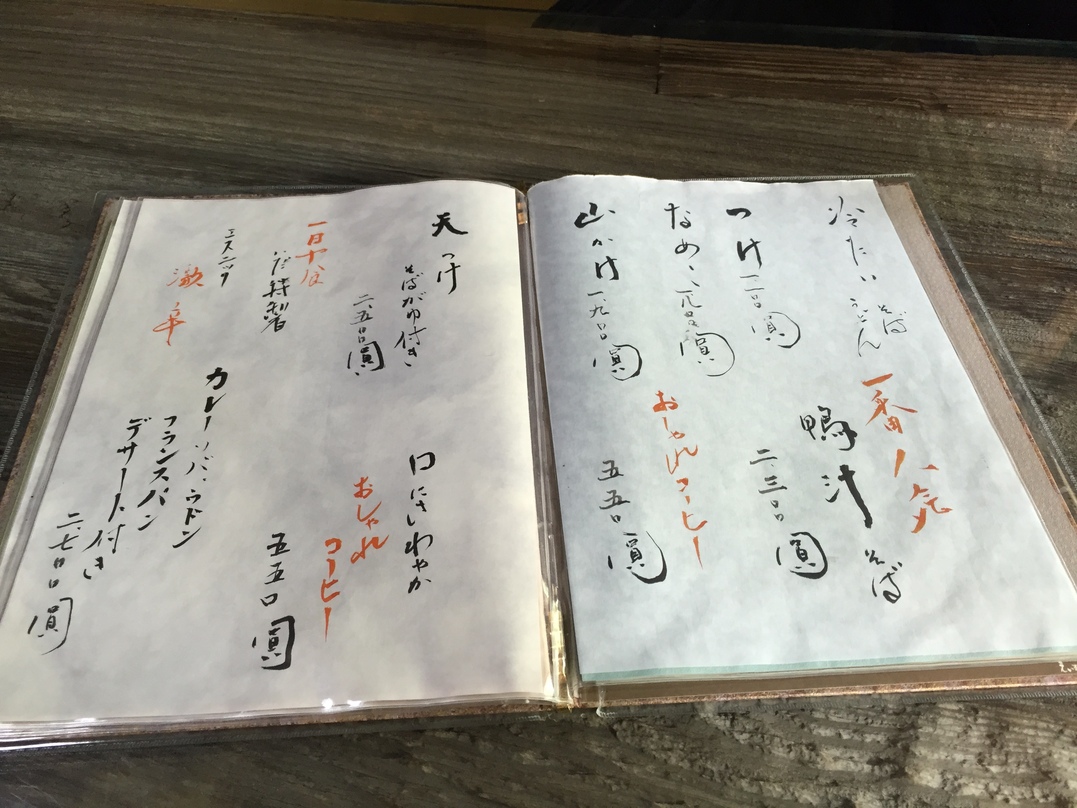 冷たい
そば
うどん
一番人気
鴨汁
そば
二、三〇〇圓
つけ
一、一〇〇圓
なめこ
圓
おしゃれコーヒー
五五〇圓
山かけ
一、九〇〇圓
天つけ
そばがゆ付き
二、五〇〇圓
口にさわやか
おしゃれ
コーヒー
五五〇圓
一日十食
特製
エスニック
激辛
カレーソバ、ウドン
フランスパン
デザート付き
二、七〇〇圓